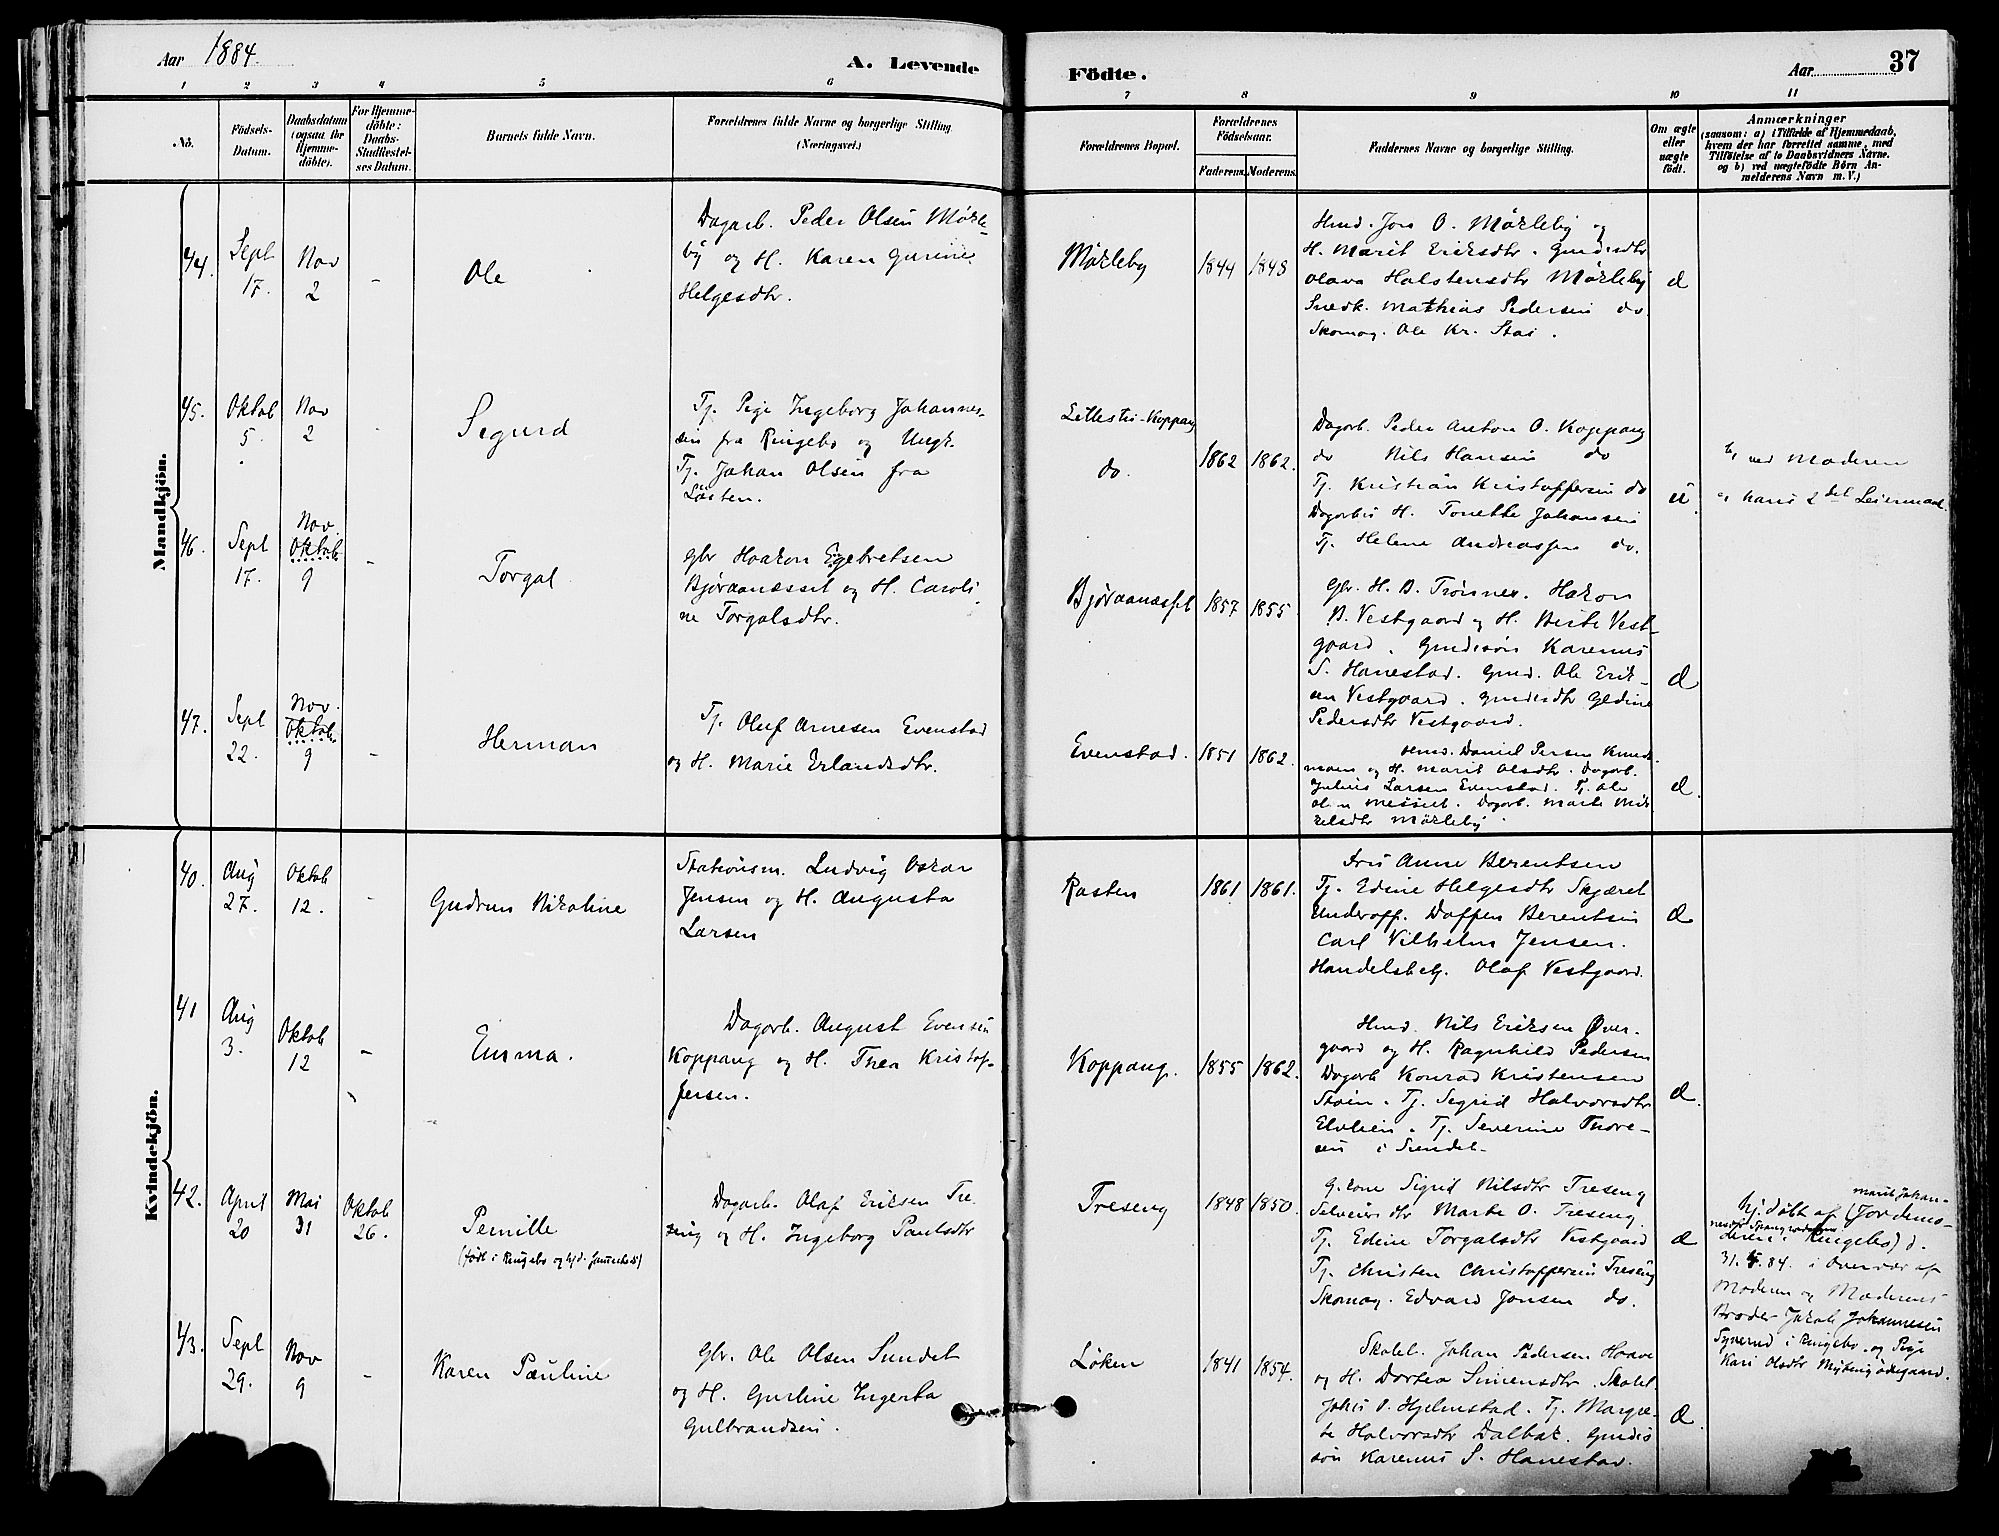 Aar 1884.
A. Levende
Födte.
Aar
37
1 2 3 4 5 6
7 8 9 10 11
No.
Födsels-
Datum.
Daabsdatum
(ogsaa for
Hjemme-
döbte).
For Hjemme-
döbte:
Daabs-
Stadfæstel-
ses Datum.
Barnets fulde Navn.
Forældrenes fulde Navne og borgerlige Stilling
(Næringsvei.)
Forældrenes Bopæl.
Forældrenes
Födselsaar.
Faderens. Moderens.
Faddernes Navne og borgerlige Stilling.
Om ægte
eller
uægte
födt.
Anmærkninger
(saasom: a) i Tilfælde af Hjemmedaab,
hvem der har forrettet samme, med
Tilföielse af to Daabsvidners Navne.
og b) ved uægtefödte Börn An-
melderens Navn m. V.)
Mandkjön.
44.
Sept
17.
Nov
2
-
Ole
Dagarb. Peder Olsen Mørkle-
by og H. Karen Gurine
Helgesdtr.
Mørkleby
1844 1848
Hmd. Jon O. Mørkleby og
H. Marit Eriksdtr. Gmdsdtr
Olava Halstensdtr Mørkleby
Snedk. Mathias Pedersen do
Skomag. Ole Kr. Stai.
45.
Oktob
5.
Nov
2
Sigurd
Tj. Pige Ingeborg Johannes-
sen fra Ringebo og Ungk.
Tj. Johan Olsen fra
Löiten.
Koppang
do.
1862 1862.
Dagarb. Peder Anton O. Koppang
do Nils Hansen do
Tj. Kristian Kristoffersen do
H. Tonette Johansen
Tj. Helene Andreassen do.
u.
ved Moderen
hans 2det Leiermaal.
46.
Sept
17.
Nov.
Oktob
9
-
Torgal
Gbr Haakon Egebretsen
Bjøraanæsset og H. Caroli-
ne Torgalsdtr.
Bjøraanæsset
1857 1855
Gbr. H. B. Trønnes. Hakon
B. Vestgaard og H. Berte Vest-
gaard. Gmdssøn Karenus
S. Hanestad. Gmd. Ole Erik-
sen Vestgaard. Gmdsdtr
Pedersdtr Vestgaard.
47.
Sept
22.
Nov.
Oktob.
9
-
Herman
Tj. Oluf Arnesen Evenstad
og H. Marie Erlandsdtr.
Evenstad.
1851 1862.
Hmd. Daniel Persen
og H. Marit Olsdtr. Dagarb.
Julius Larsen Evenstad. Tj. Ole
Messelt. Dagarb. Marte Mik-
kelsdtr Mørkleby.
Kvindekjön.
40.
Aug
27.
Oktob
12.
-
Gudrun Nikoline
Stationsm. Ludvig Oskar
Jensen og H. Augusta
Larsen
Rasten
1861 1861.
Anne Berentsen
Tj. Edine Helgesdtr Skjæret
Underoff. Berentsen
Carl Vilhelm Jensen.
Handelsbetj. Olaf Vestgaard.
41
Aug
3.
Oktob
12
-
Emma.
Dagarb. August Evensen
Koppang og H. Thea Kristof-
fersen.
Koppang.
1855 1862.
Hmd. Nils Eriksen Øver-
gaard og H. Ragnhild Pedersen
Dagarb Konrad Kristensen
Stoien. Tj. Sigrid Halvorsdtr
Elvheim. Tj. Severine Thore-
sen i Sundet.
42.
April
20
Mai
31
Oktob
26.
Pernille
(født i Ringebo og hjd. sammesteds)
Dagarb. Olaf Eriksen Tre-
seng og H. Ingeborg Paulsdtr
Treseng
1848 1850.
G.kone Sigrid Nilsdtr Treseng
Marte O. Treseng.
Tj. Edine Torgalsdtr Vestgaard
Tj. Christen Christoffersen Treseng
Skomag. Edvard Jonsen do.
Hj. døbt af (Jordemo-
Marit Johan-
deren i Ringebo) d.
31.5.84. i Overvær af
Moderen og Moderens
Broder Jakob Johannesen
i Ringebo og Pige
Kari Olsdtr
43.
Sept
29.
Nov
9
-
Karen Pauline
Gbr. Ole Olsen Sundet
og H. Gurline Ingerba
Gulbrandsen.
Løken
1841 1854.
Skolel. Johan Pedersen Haave
og H. Dortea Simensdtr. Skolel.
Johs O. Hjelmstad. Tj. Margre-
te Halvorsdtr Dalbak. Gmds-
søn Karenus S. Hanestad.